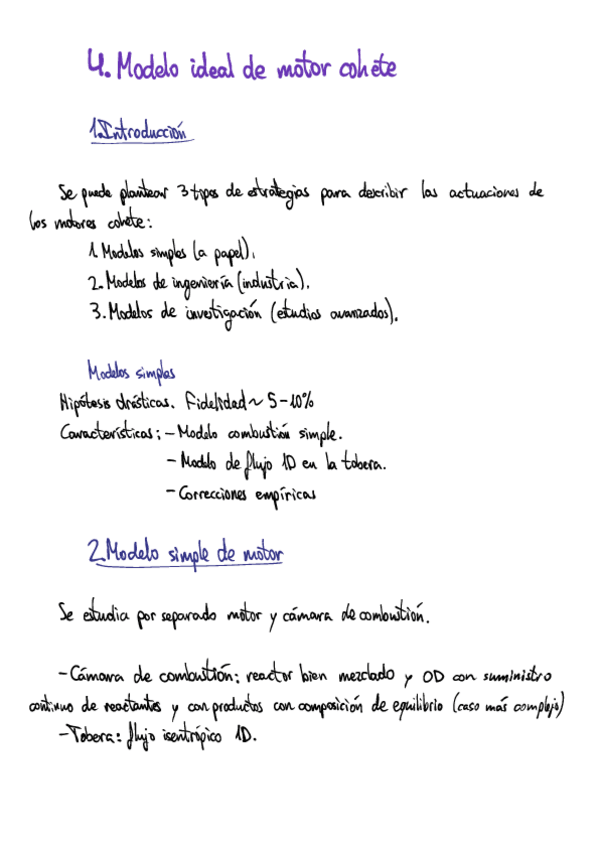 4. Modelo ideal de motor cohete
1. Introducción
Se puede plantear 3 tipos de estrategias para describir las actuaciones de
los motores cohete:
1. Modelos simples (a papel).
2. Modelos de ingeniería (industria).
3. Modelos de investigación (estudios avanzados).
Modelos simples
Hipótesis drásticas. Fidelidad ~ 5-10%
Características: - Modelo combustión simple.
- Modelo de flujo 1D en la tobera.
- Correcciones empíricas
2. Modelo simple de motor
Se estudia por separado motor y cámara de combustión.
- Cámara de combustión: reactor bien mezclado y 0D con suministro
continuo de reactantes y con productos con composición de equilibrio (caso más complejo)
- Tobera: flujo isentrópico 1D.